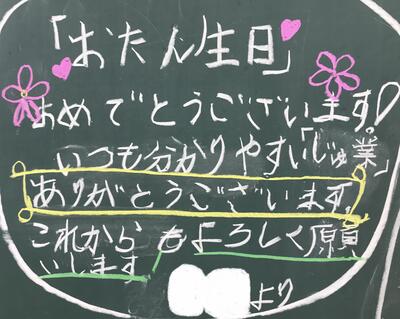 「おたん生日」
おめでとうございます!
いつも分かりやすい「じゅ業」
ありがとうございます。
これからもよろしく願
いします
より